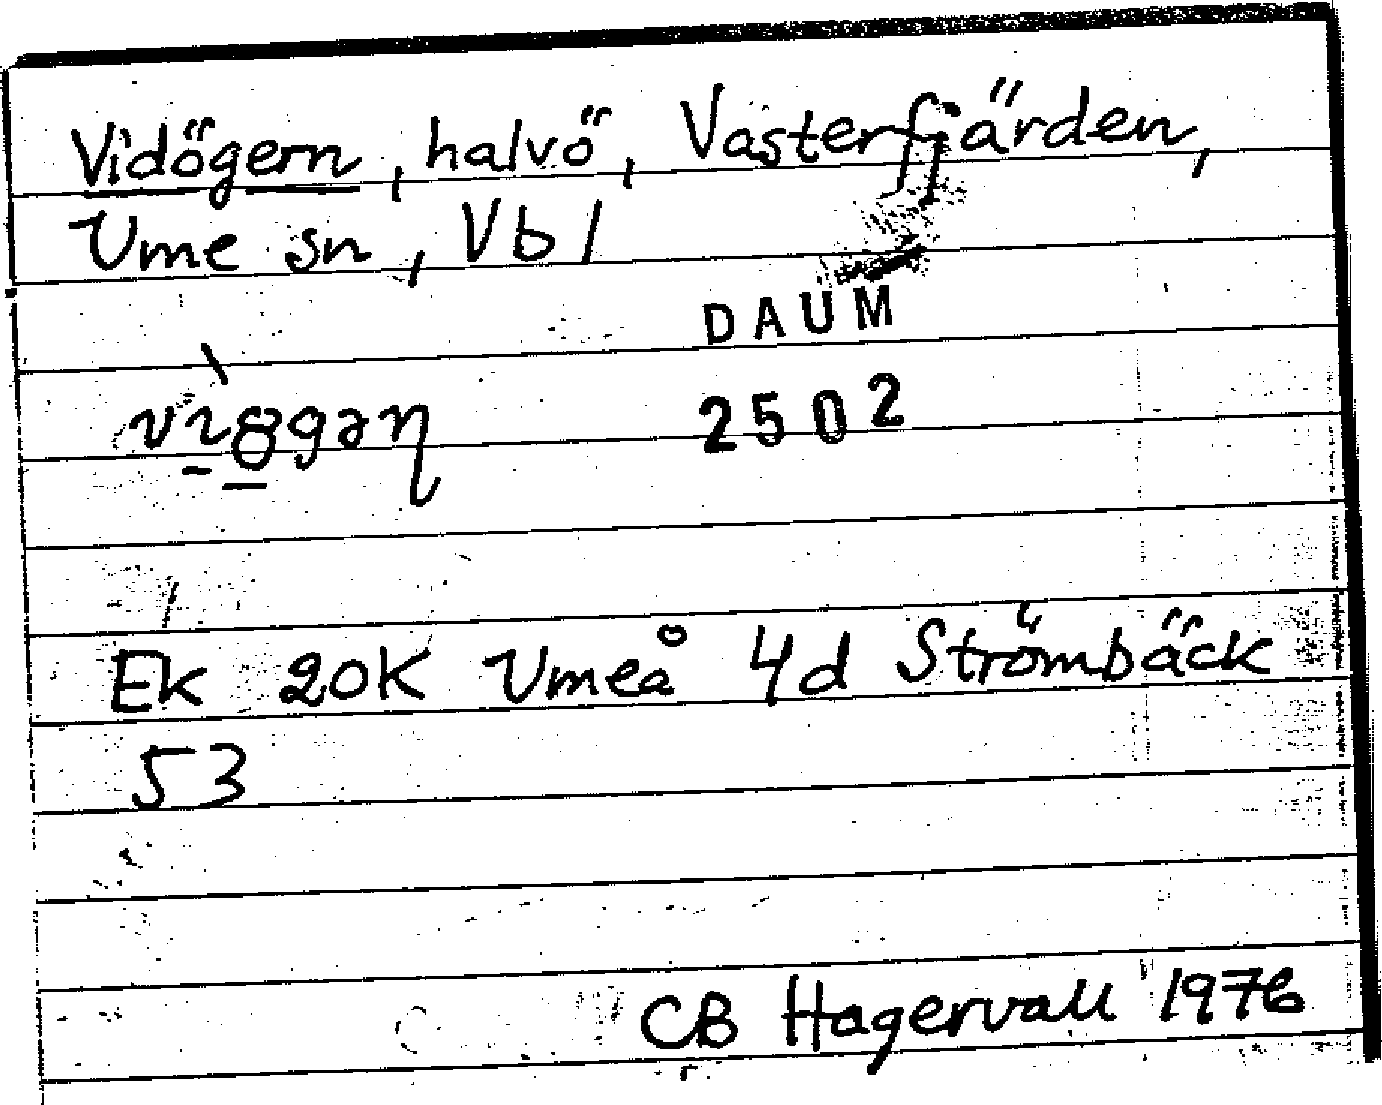 Vidögern, halvö, Västerfjärden,
Ume sn, Vbl
DAUM
2502
Ek 20K Umeå 4d Strömbäck
53
CB Hagervall 1976